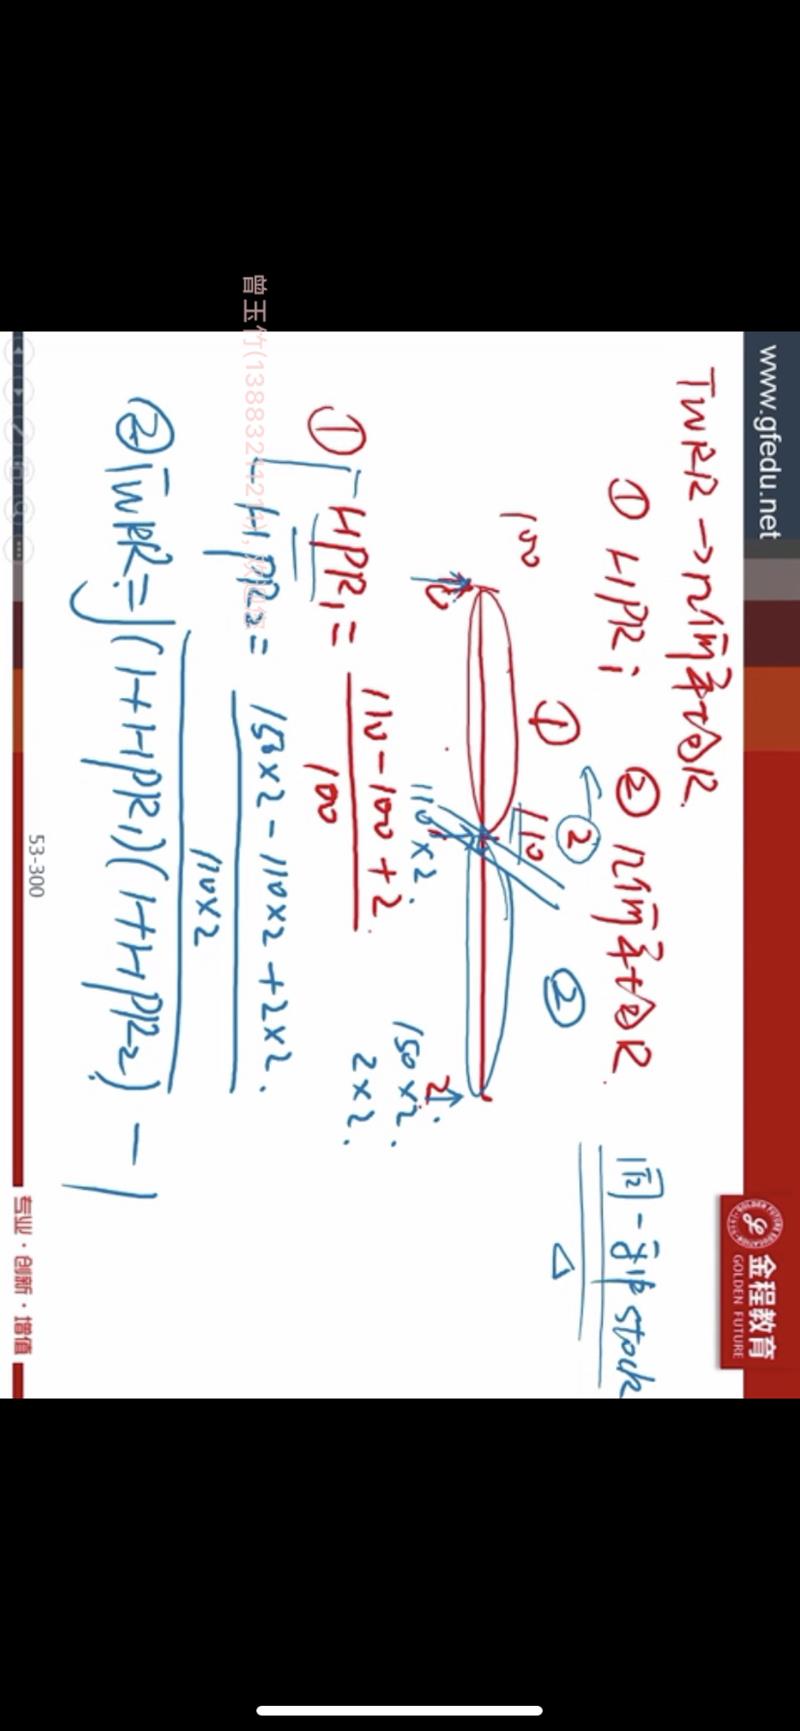 www.gfedu.net
金程教育
GOLDEN FUTURE
TWRR → 几何平均R
① HPRi ② 几何平均R
同一种 stock
① ② ②
100
110
0
2
110×2
150×2
2×2
① HPR₁ = (110 - 100 + 2) / 100
HPR₂ = (150×2 - 110×2 + 2×2) / (110×2)
② TWRR = √(1+HPR₁)(1+HPR₂) - 1
53-300
专业·创新·增值